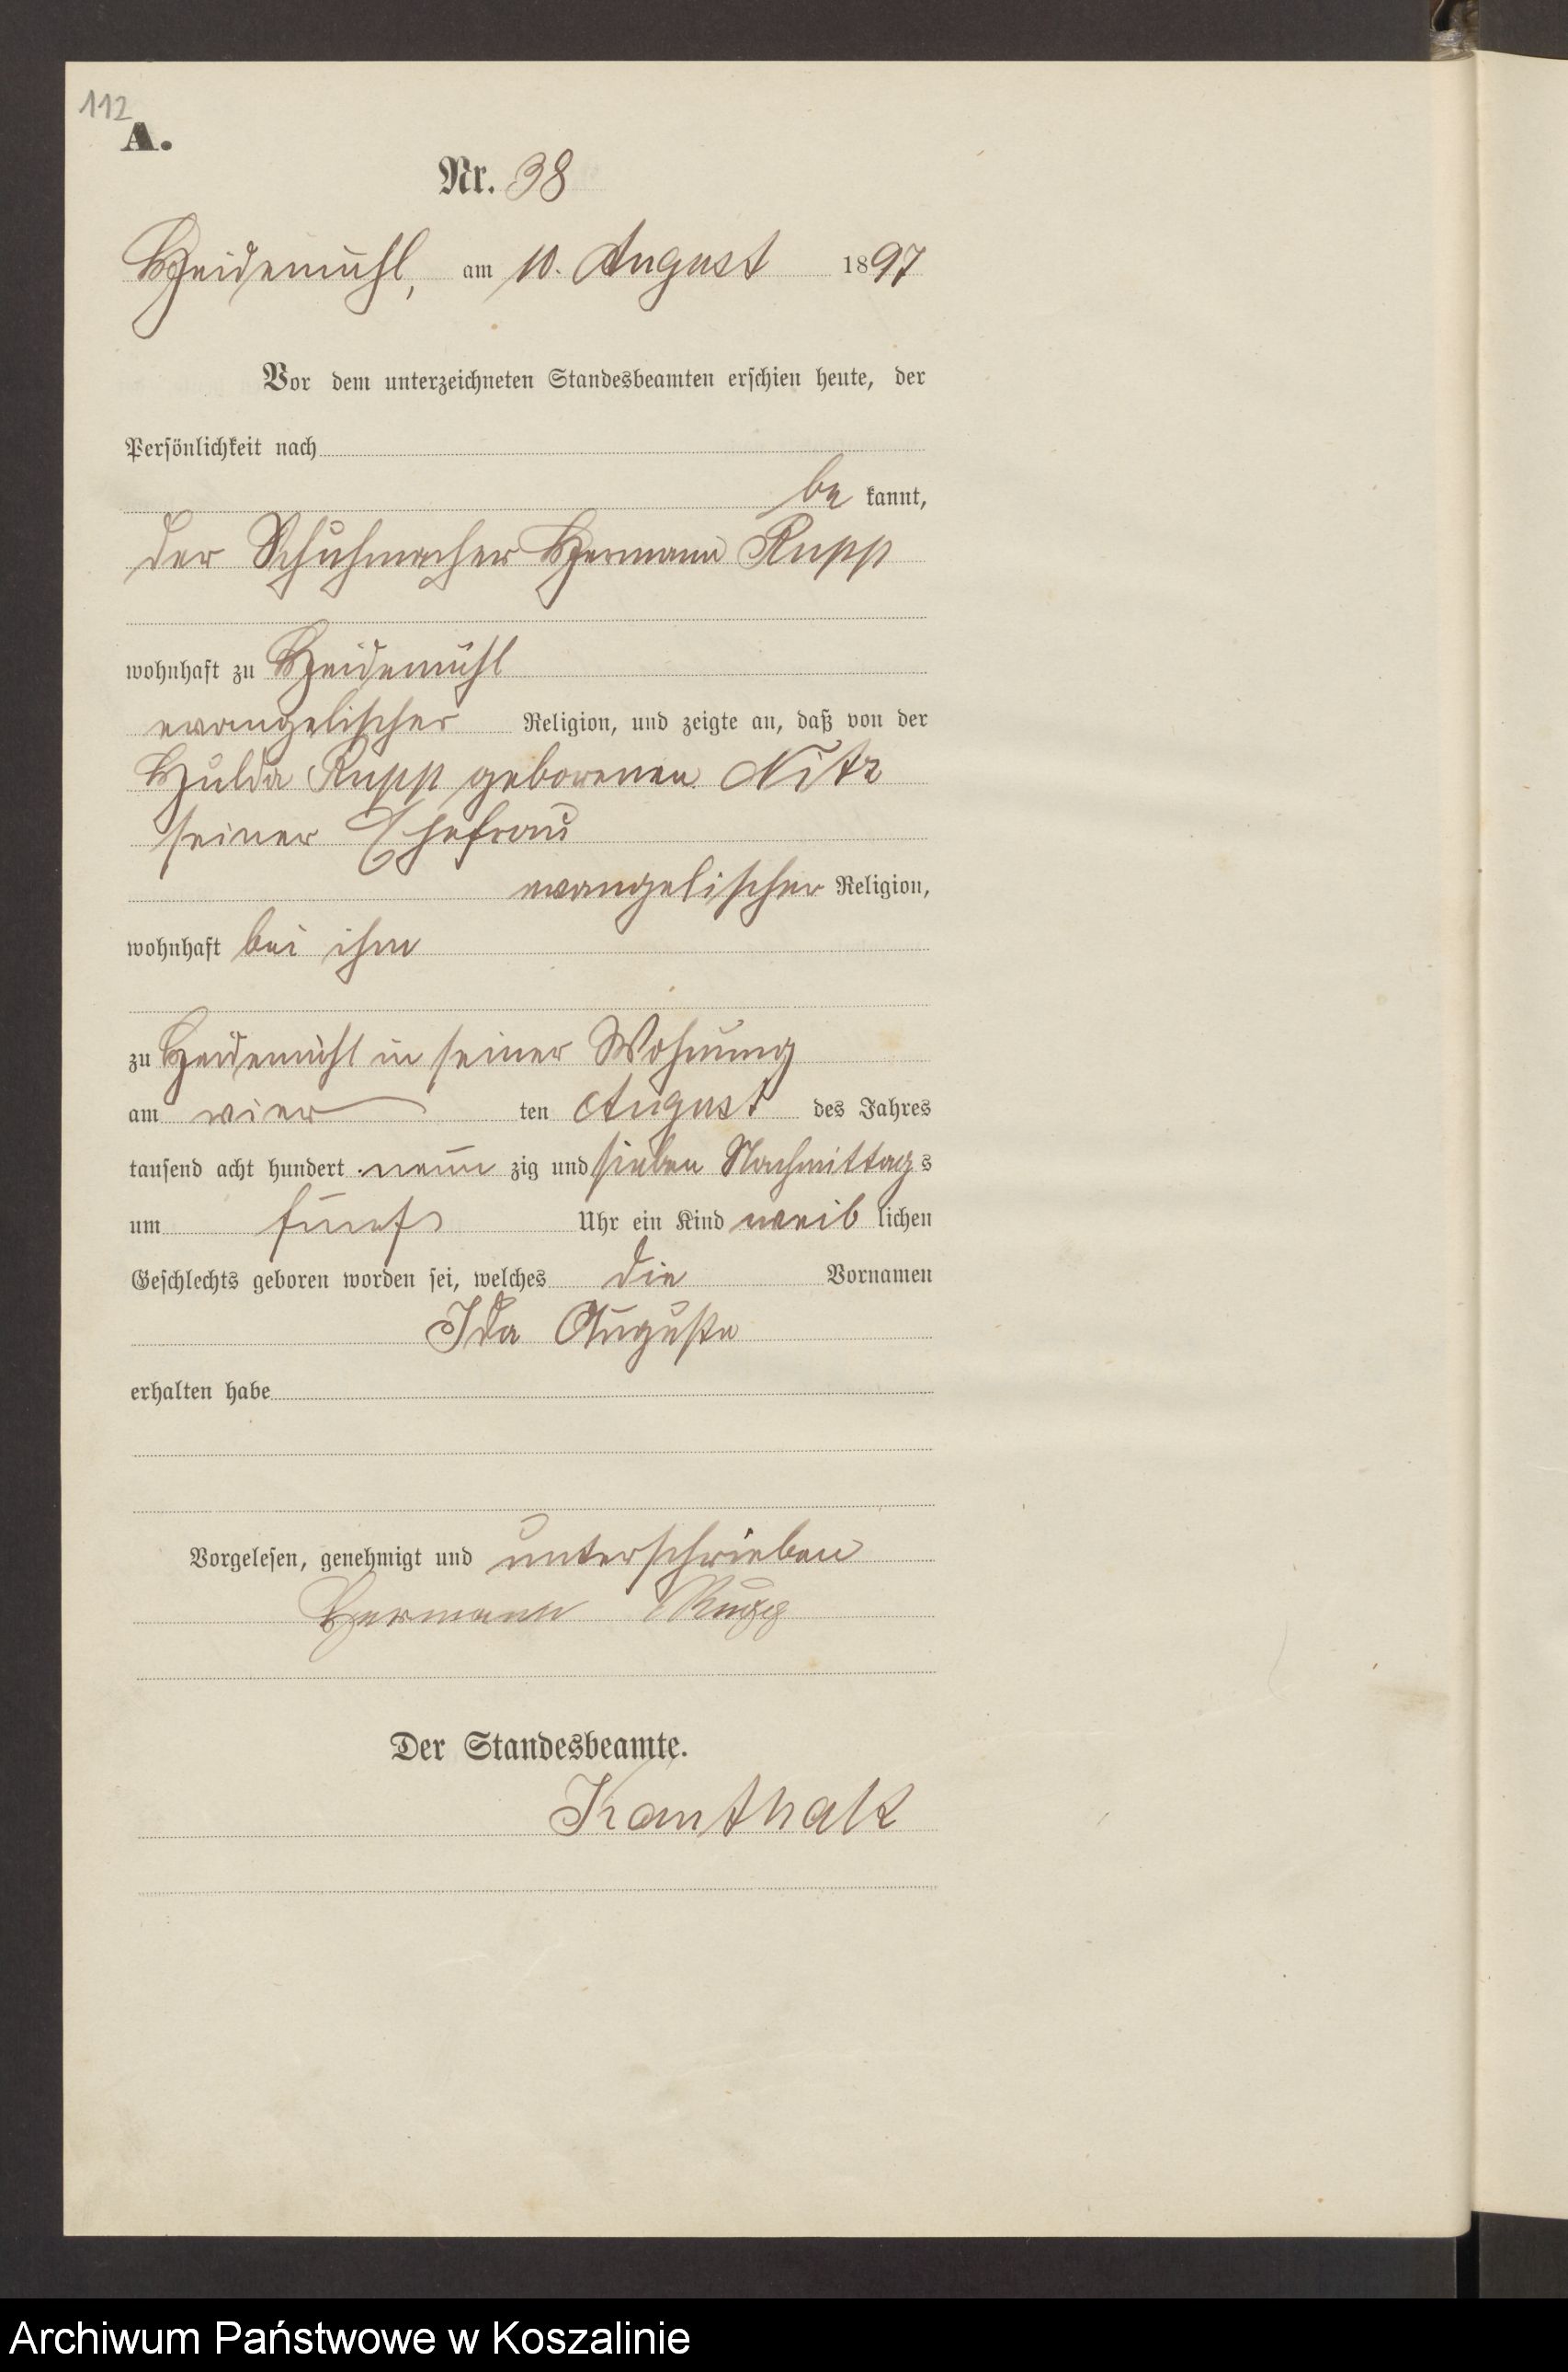 112
A.
Nr. 38
Heidemühl, am 10. August 1897
Vor dem unterzeichneten Standesbeamten erschien heute, der
Persönlichkeit nach
be kannt,
der Schuhmacher Hermann Rupp
wohnhaft zu Heidemühl
evangelischer Religion, und zeigte an, daß von der
Hulda Rupp geborenen Nitz
seiner Ehefrau
evangelischer Religion,
wohnhaft bei ihm
zu Heidemühl in seiner Wohnung
am vier ten August des Jahres
tausend acht hundert neun zig und sieben Nachmittag s
um fünf Uhr ein Kind weib lichen
Geschlechts geboren worden sei, welches die Vornamen
Ida Auguste
erhalten habe
Vorgelesen, genehmigt und unterschrieben
Hermann Rupp
Der Standesbeamte.
Kanthak
Archiwum Państwowe w Koszalinie